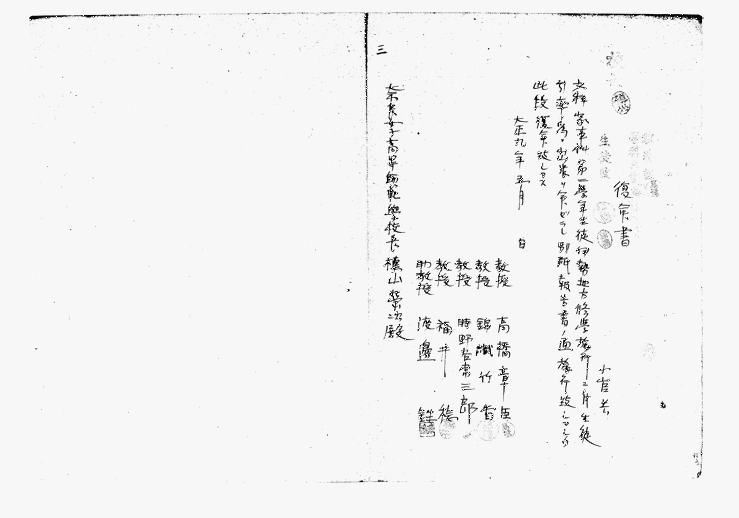 復命書
小官共
文科家事科第一學年生徒伊勢地方修學旅行ニ付生徒
引率ノ為出張ヲ命ゼラレ別紙報告書ノ通旅行致シマシタ
此段復命致シマス
大正九年五月 日
教授 高橋章臣
教授 錦織竹香
教授 時野谷常三郎
教授 福井
助教授 渡邊
奈良女子高等師範學校長 槇山榮次殿
三